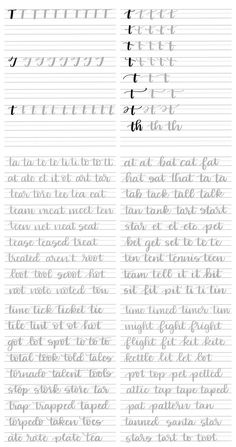 T T T T T T T T T T
T T T T T T T T
t t t t t t t t t t t
t t t t t
t t t t t
t t t t t
t t t t t
t t t t
t t t
th th th
ta ta te te ti ti to to tt
at ate et it ot art tar
tear tore tee tea eat
team meat meet ten
teen net neat seat
tease teased treat
treated aren't root
loot tool scoot hot
not note noted ton
time tick ticket tic
tile tint ot ot hot
got lot spot to to to
total took told tales
tornado talent tools
stop stork store tar
trap trapped taped
torpedo taken toes
ate plate tea
at at bat cat fat
hat sat that ta ta
tab tack tall talk
tan tank tart start
star et et etc pet
bet get set to te te
ten tent tennis teen
team tell it it bit
sit fit pit ti ti tin
time timed timer tim
might fight fright
flight fit kit kite
kettle let let lot
pot top pet petted
attic tap tape taped
pat pattern tan
tanned santa star
stars tart to toot